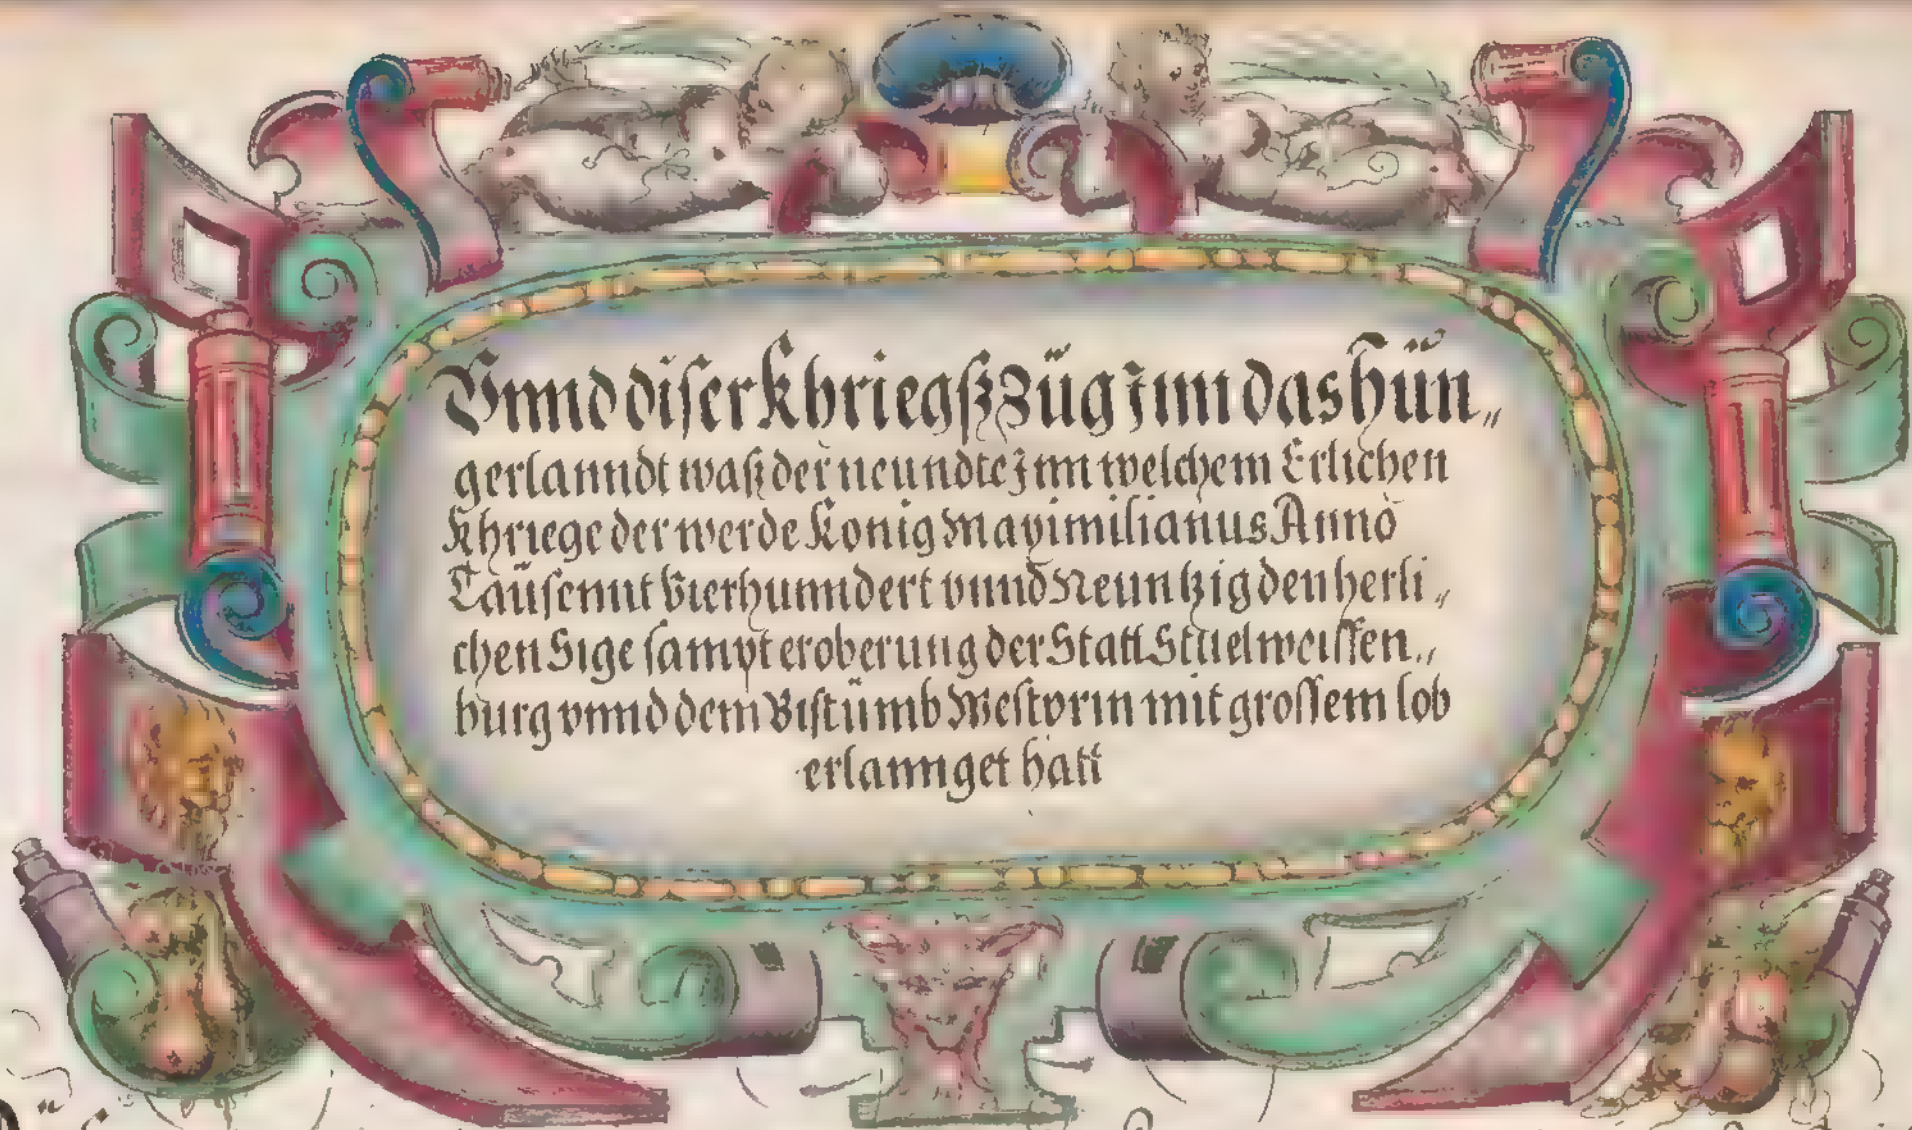 Vnnd diser khriegßzüg Inn das hün„
gerlanndt waß der neundte Inn welchem Erlichen
khriege der werde Konig Maximilianus Anno
Taüsennt Vierhunndert vnnd Neuntzig den herli„
chen Sige sampt eroberung der Statt Stuelweissen„
burg vnnd dem Bistümb Westprin mit grossem lob
erlannget hatt